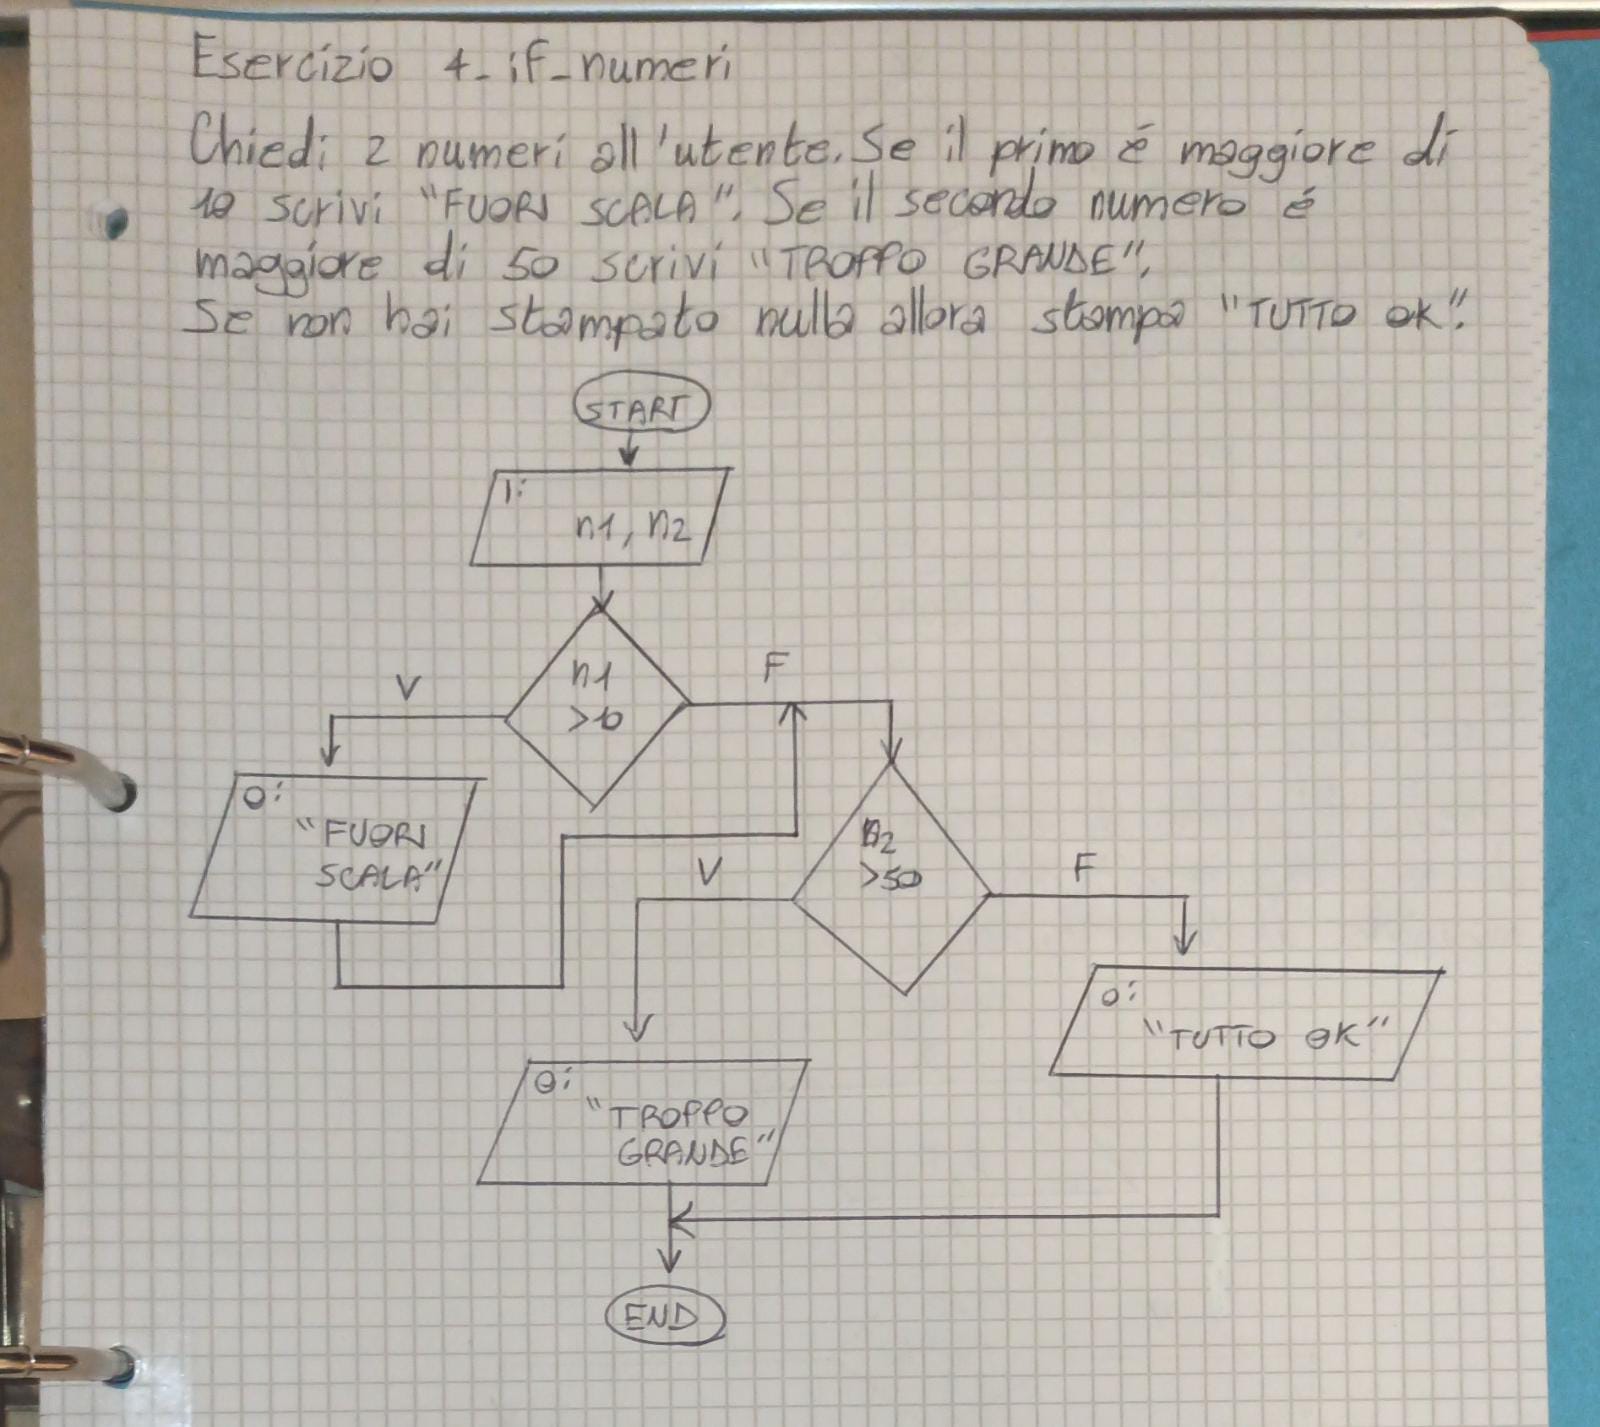 Esercizio 4_if_numeri
Chiedi 2 numeri all'utente. Se il primo é maggiore di
10 scrivi "FUORI SCALA". Se il secondo numero é
maggiore di 50 scrivi "TROPPO GRANDE".
Se non hai stampato nulla allora stampa "TUTTO OK".
START
I:
n1, n2
n1
>10
V
F
O:
"FUORI
SCALA"
n2
>50
V
F
O:
"TUTTO OK"
O:
"TROPPO
GRANDE"
END